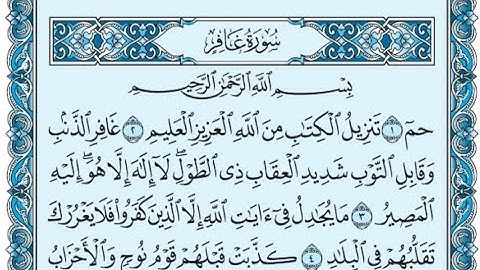 سُورَةُ غَافِرٍ
بِسْمِ ٱللَّهِ ٱلرَّحْمَٰنِ ٱلرَّحِيمِ
حمٓ ۝١ تَنزِيلُ ٱلْكِتَٰبِ مِنَ ٱللَّهِ ٱلْعَزِيزِ ٱلْعَلِيمِ ۝٢ غَافِرِ ٱلذَّنۢبِ
وَقَابِلِ ٱلتَّوْبِ شَدِيدِ ٱلْعِقَابِ ذِى ٱلطَّوْلِۖ لَآ إِلَٰهَ إِلَّا هُوَۖ إِلَيْهِ
ٱلْمَصِيرُ ۝٣ مَا يُجَٰدِلُ فِىٓ ءَايَٰتِ ٱللَّهِ إِلَّا ٱلَّذِينَ كَفَرُوا۟ فَلَا يَغْرُرْكَ
تَقَلُّبُهُمْ فِى ٱلْبِلَٰدِ ۝٤ كَذَّبَتْ قَبْلَهُمْ قَوْمُ نُوحٍ وَٱلْأَحْزَابُ